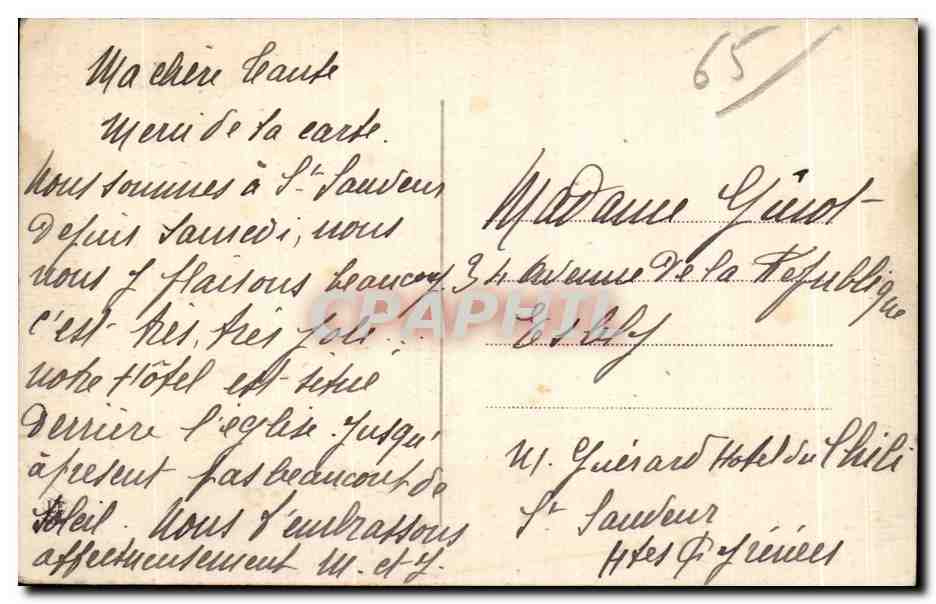 65
Ma chère tante
Merci de ta carte.
Nous sommes à St Sauveur
depuis samedi, nous
nous y plaisons beaucoup
c'est très, très joli.
notre Hôtel est situé
derrière l'église. Jusqu'
à present pas beaucoup de
soleil. Nous t'embrassons
affectueusement M. et J.
Madame
34 avenue de la Republique
Esbly
M. Guérard Hotel du Chili
St Sauveur
Htes Pyrénées
CPAPHIL